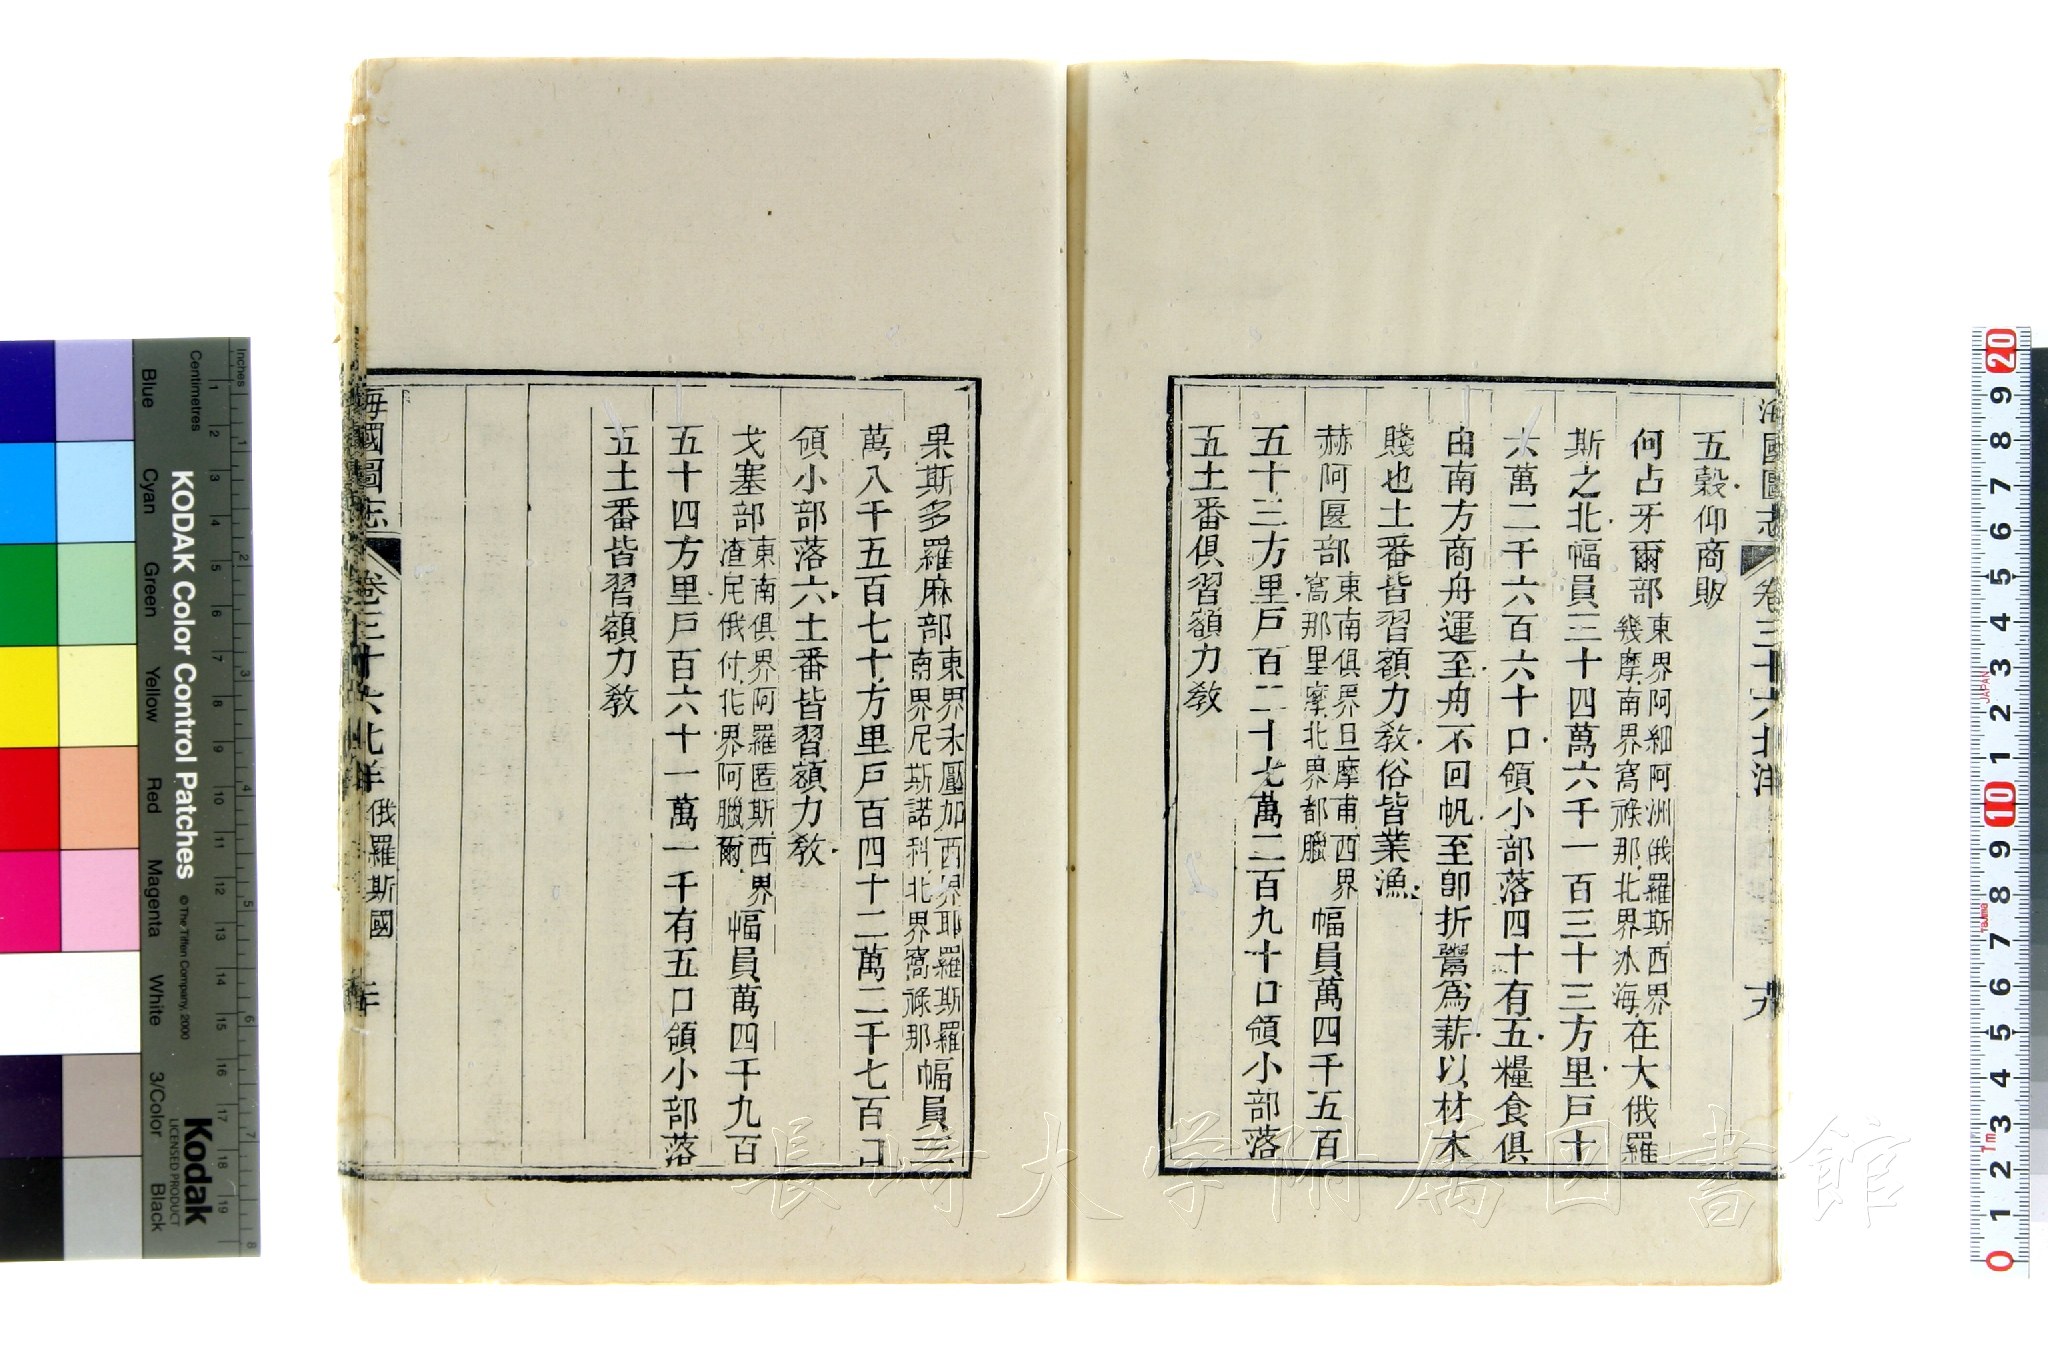 海國圖志 卷三十六北洋
五穀仰商販
何占牙爾部東界阿細阿洲俄羅斯西界幾摩南界窩祿那北界冰海在大俄羅
斯之北幅員三十四萬六千一百三十三方里戶十
六萬二千六百六十口領小部落四十有五糧食俱
由南方商舟運至舟不回帆至卽折鬻爲薪以材木
賤也土番皆習額力敎俗皆業漁
赫阿匽部東南俱界旦摩甫西界窩那里摩北界都臘幅員萬四千五百
五十三方里戶百二十七萬二百九十口領小部落
五土番俱習額力敎
果斯多羅麻部東界未壓加西界耶羅斯羅南界尼斯諾科北界窩祿那幅員三
萬八千五百七十方里戶百四十二萬二千七百口
領小部落六土番皆習額力敎
戈塞部東南俱界阿羅匿斯西界渣尼俄付北界阿臘爾幅員萬四千九百
五十四方里戶百六十一萬一千有五口領小部落
五土番皆習額力敎
海國圖志 卷三十六北洋 俄羅斯國
長崎大学附属図書館
KODAK Color Control Patches
© The Tiffen Company, 2000
Kodak
LICENSED PRODUCT
Inches
Centimetres
Blue
Cyan
Green
Yellow
Red
Magenta
White
3/Color
Black